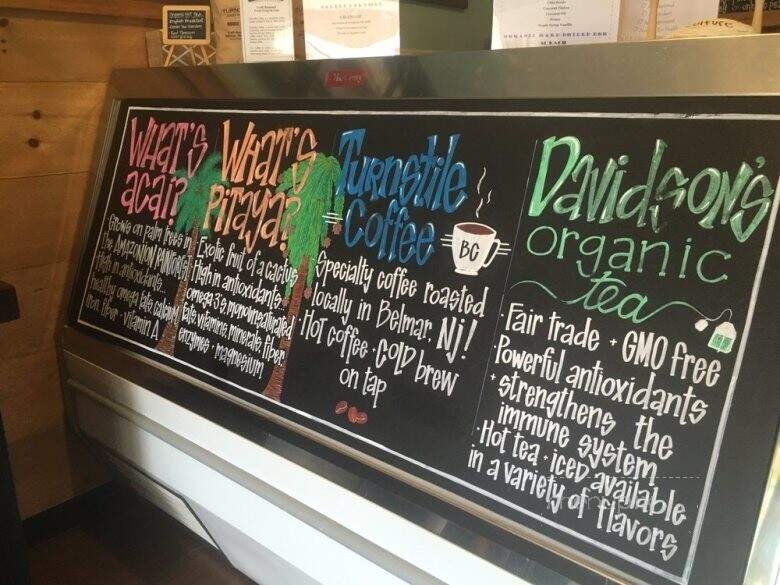 WHAT'S
acai?
Grows on palm trees in
The AMAZONION RAINFOREST
High in antioxidants
healthy omega fats, calcium,
iron, fiber · vitamin A
WHAT'S
PiTaya?
Exotic fruit of a cactus
High in antioxidants
omega 3's, monounsaturated
fats, vitamins, minerals, fiber
enzymes · magnesium
Turnstile
Coffee
BC
Specialty coffee roasted
locally in Belmar, NJ!
·Hot coffee · COLD brew
on tap
Davidson's
organic
tea
·Fair trade · GMO free
·Powerful antioxidants
·strengthens the
immune system
·Hot tea · iced available
in a variety of flavors